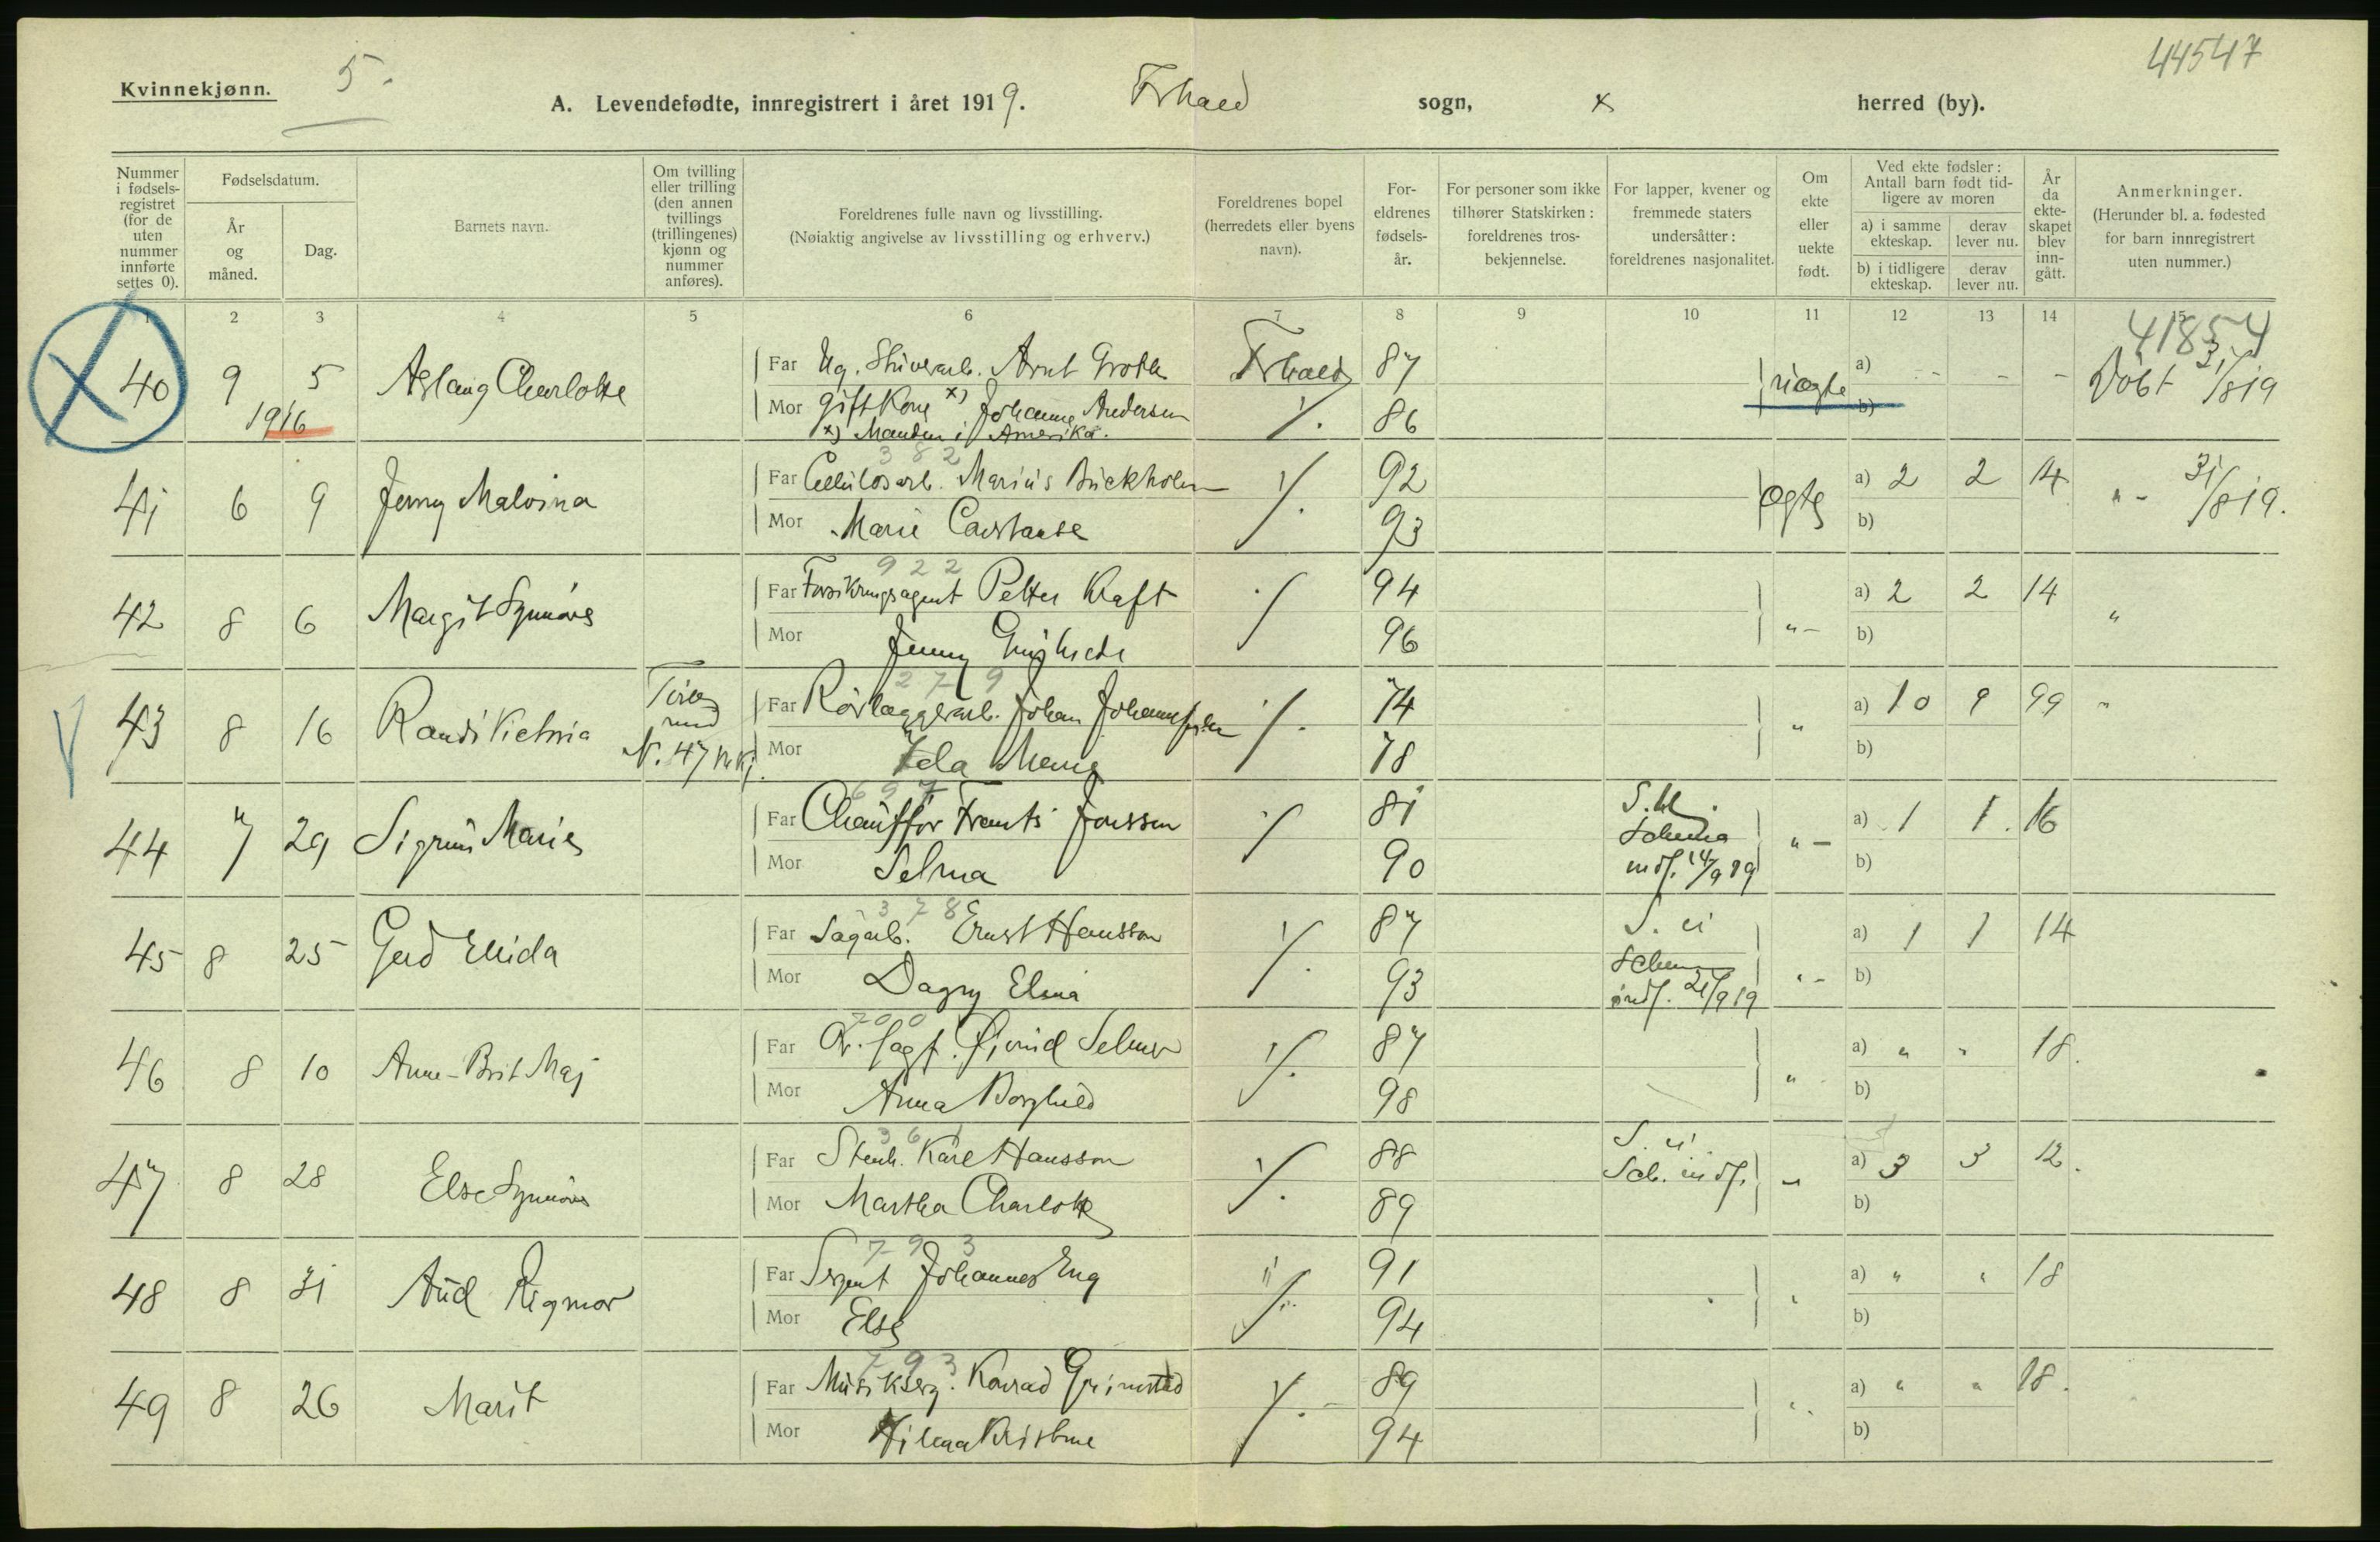 44547
Kvinnekjønn. 5.
A. Levendefødte, innregistrert i året 1919. Frhald sogn, x herred (by).
Nummer i fødsels-registret (for de uten nummer innførte settes 0).
Fødselsdatum.
År og måned.
Dag.
Barnets navn.
Om tvilling eller trilling (den annen tvillings (trillingenes) kjønn og nummer anføres).
Foreldrenes fulle navn og livsstilling.
(Nøiaktig angivelse av livsstilling og erhverv.)
Foreldrenes bopel (herredets eller byens navn).
For-eldrenes fødsels-år.
For personer som ikke tilhører Statskirken: foreldrenes tros-bekjennelse.
For lapper, kvener og fremmede staters undersåtter: foreldrenes nasjonalitet.
Om ekte eller uekte født.
Ved ekte fødsler: Antall barn født tid-ligere av moren
a) i samme ekteskap.
derav lever nu.
b) i tidligere ekteskap.
derav lever nu.
År da ekte-skapet blev inn-gått.
Anmerkninger.
(Herunder bl. a. fødested for barn innregistrert uten nummer.)
1 2 3 4 5 6 7 8 9 10 11 12 13 14 15
41854
40 9 5 Aslaug Charlotte Far Ug. Stuverarb. Arnt Groth Frhald 87 uægte a) - - - Døbt 31/8 19
1916 Mor gift Kone x) Johanne Andersen 86 b)
x) Manden i Amerika.
382
41 6 9 Jenny Malvina Far Cellulosarb. Marius Buckholm 92 ægte a) 2 2 14 " - 31/8 19.
Mor Marie Constanse 93 b)
922
42 8 6 Margit Synnøve Far Forsikringsagent Petter Kraft 94 "- a) 2 2 14 "
Mor Jenny 96 b)
279
43 8 16 Randi Victoria Tvil. med N. 47 m.kj. Far Rørlæggerarb. Johan Johannesen 74 " a) 10 9 99 "
Mor Ida Marie 78 b)
697
44 7 29 Sigrun Marie Far Chauffør Frants Jonsson 81 S. u. Schema indf. 14/9 19 "- a) 1 1. 16
Mor Selma 90 b)
378
45 8 25 Gerd Elida Far Sagarb. Ernst Hansson 87 S. u. Schema indf. 21/9 19 "- a) 1 1 14
Mor Dagny Elina 93 b)
700
46 8 10 Anne-Brit Maj Far O. sagf. Øivind Selmer 87 " a) " " 18.
Mor Anna Borghild 98 b)
361
47 8 28 Else Synnøve Far Stenh. Karl Hansson 88 S. u. Sch. indf. " a) 3 3 12.
Mor Martha Charlotte 89 b)
793
48 8 31 Aud Rigmor Far Sergent Johannes Eng 91 " a) " " 18
Mor Else 94 b)
793
49 8 26 Marit Far Musikserg. Konrad Grimstad 89 " a) " " 18.
Mor Hilma Kristine 94 b)